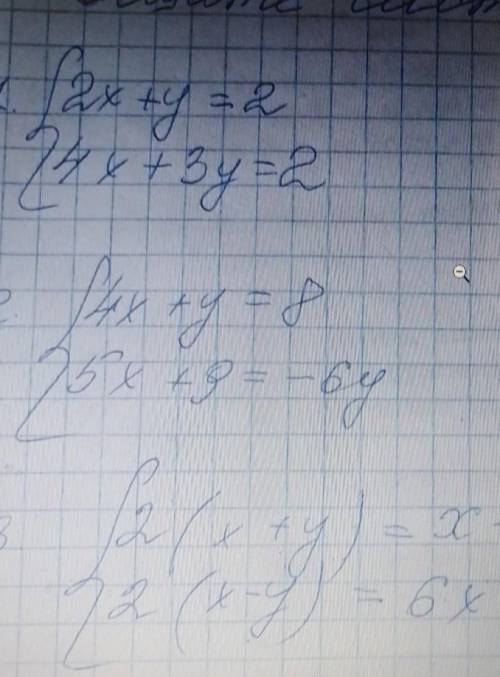 1. 2x + y = 2
4x + 3y = 2
2. 4x + y = 8
5x + 9 = -6y
3 2(x + y) = x
2(x - y) = 6x